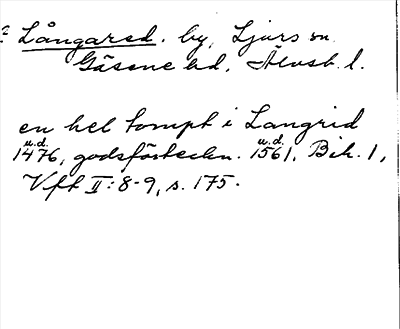 Långared. by, Ljurs sn.
Gäsene hd, Älvsb. l.
en hel tompt i Langrid
u.d. u.d.
1476, godsförteckn. 1561, Bih. 1,
Vft II:8-9, s. 175.